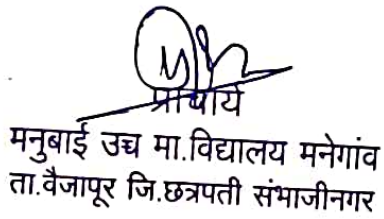 प्राचार्य
मनुबाई उच्च मा.विद्यालय मनेगांव
ता.वैजापूर जि.छत्रपती संभाजीनगर